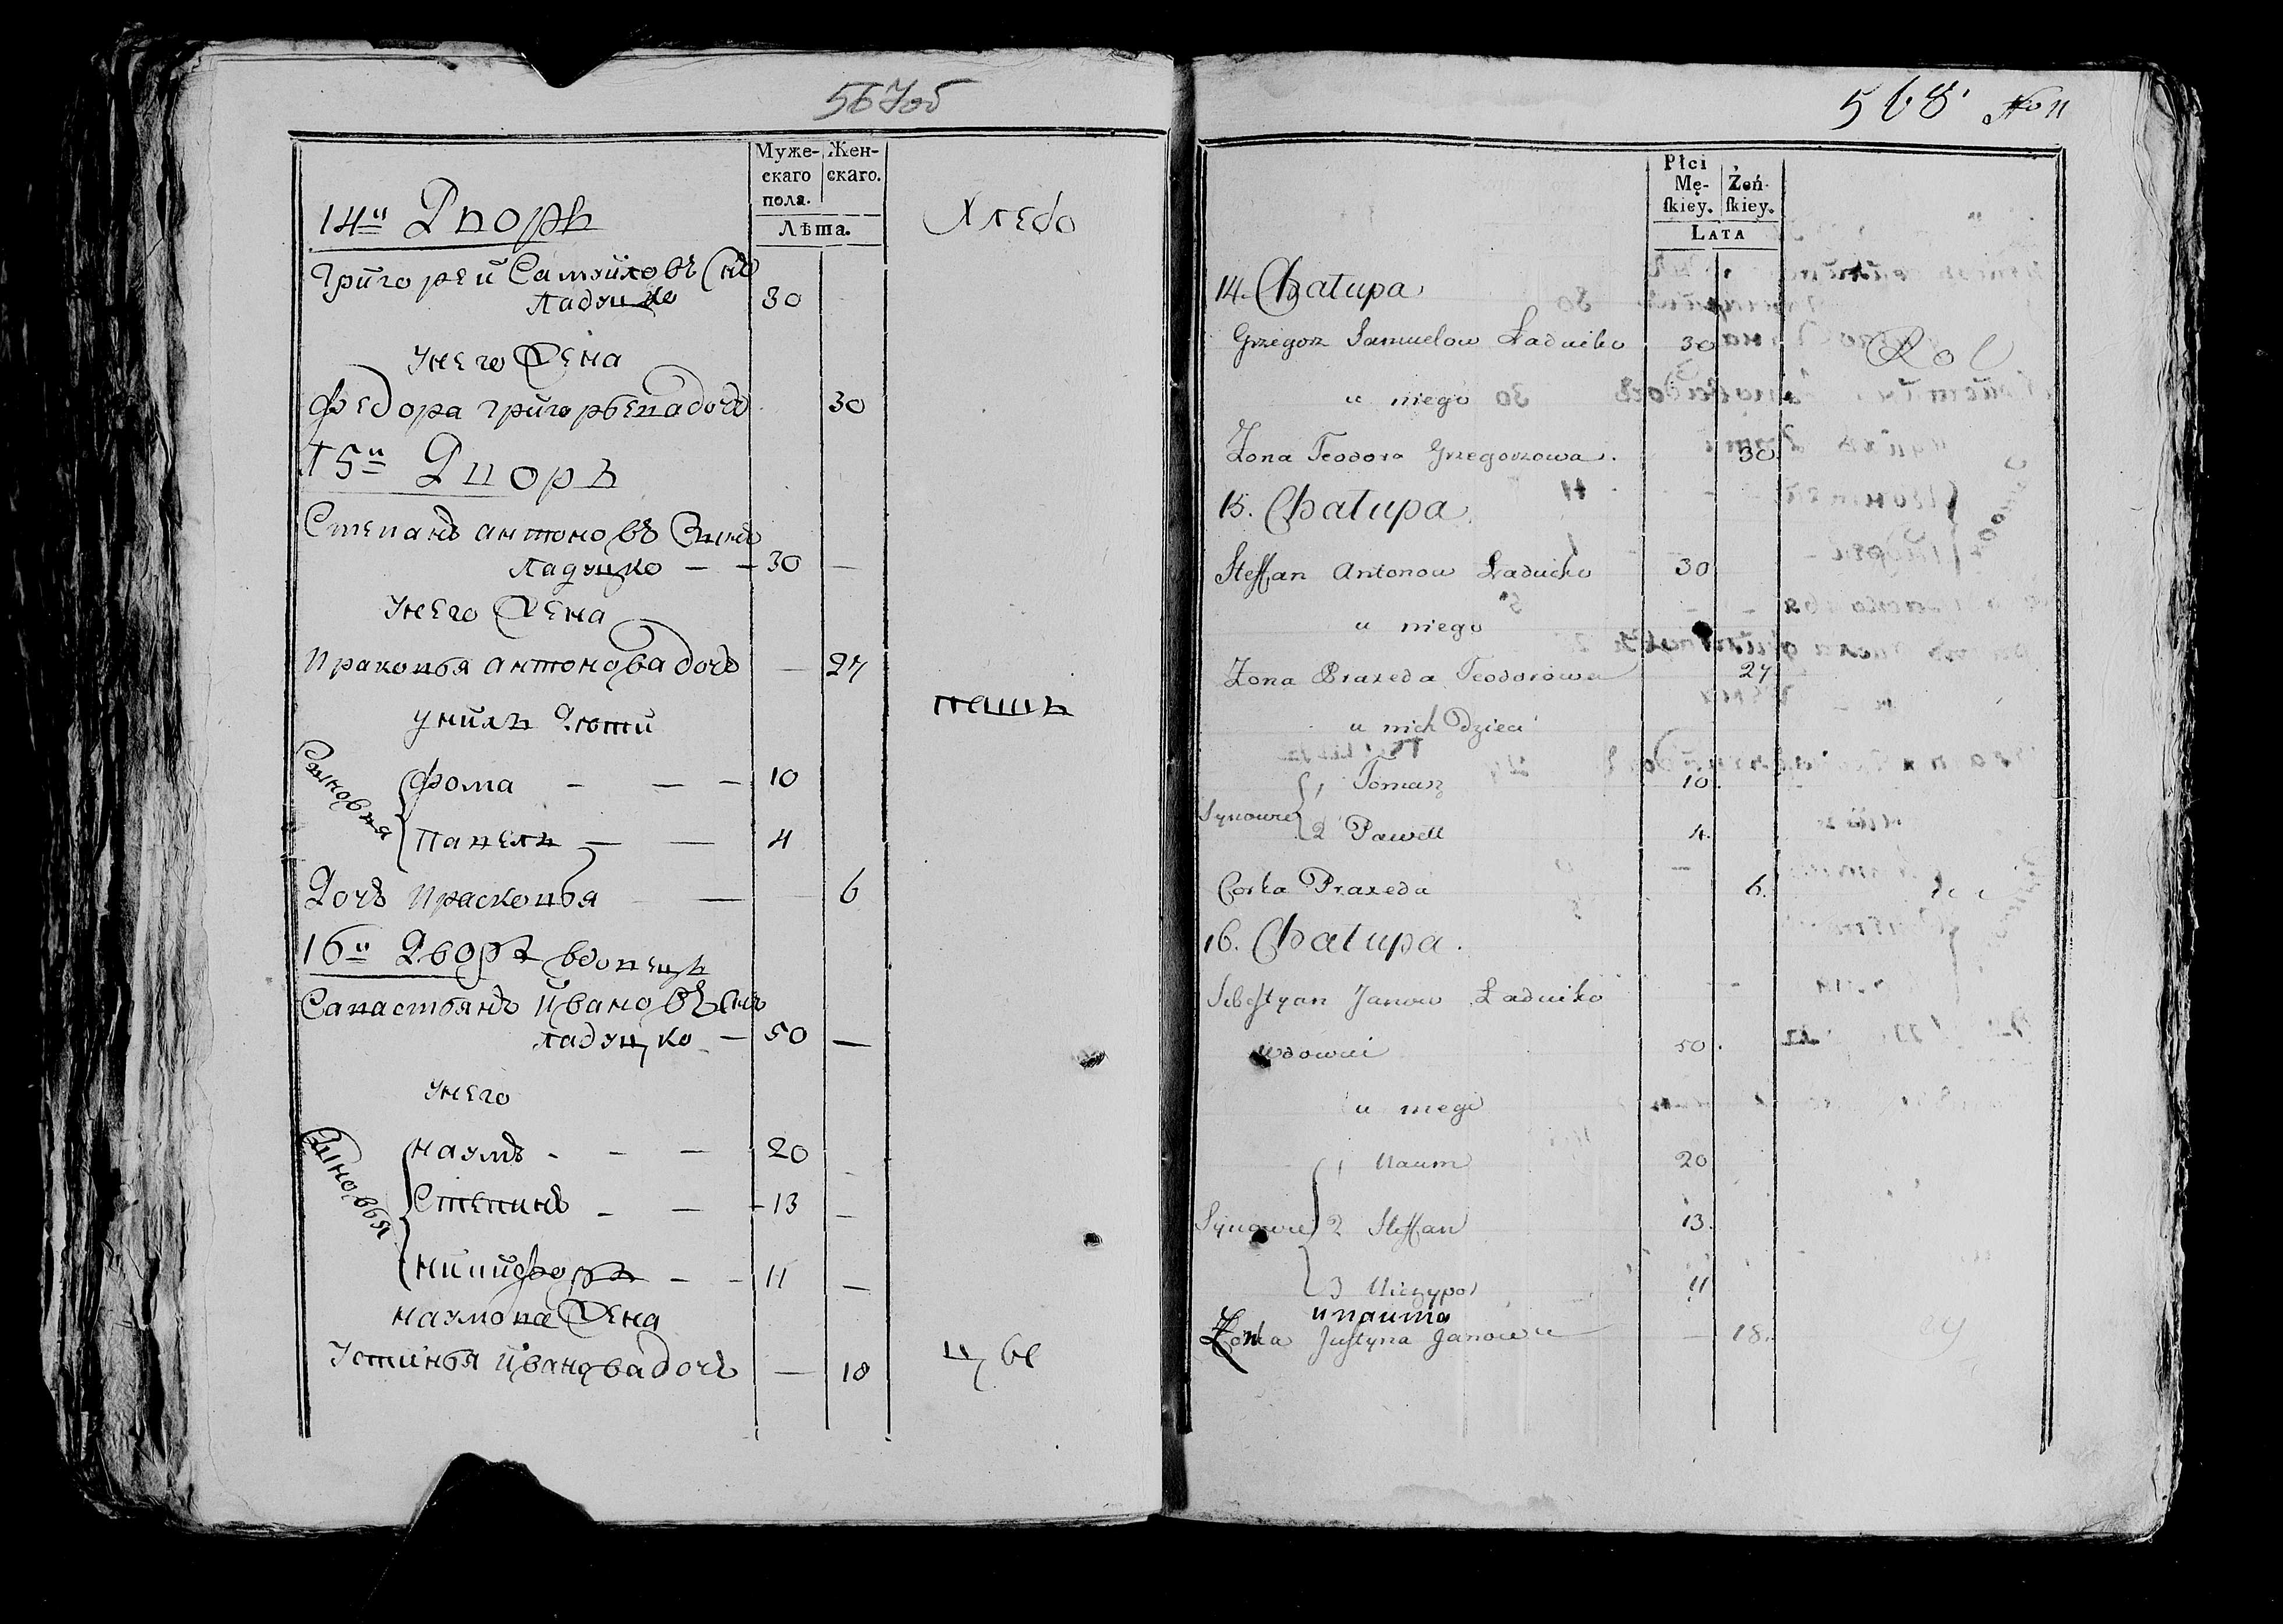 567об
Муже-
скаго
пола.
Жен-
скаго.
Лѣта.
14й Дворъ
Хлебо
Григорей Самуйловъ Снъ
Ладуцко 30
Унего Жена
Федора Григорьева дочь 30
15й Дворъ
Степанъ антоновъ Сынъ
Ладуцко — — 30 —
Унего Жена
Пракопья антонова дочь — 27
пашъ
Унихъ Дѣти
Сыновья
Фома — — — 10
Павелъ — — 4
Дочь Прасковья — — 6
16й Дворъ вдовецъ
Сапастьянъ Ивановъ Снъ
Ладуцко — 50 —
Унего
Сыновья
Наумъ - - — 20 -
Степанъ - — - 13 -
Ничипоръ - - 11 —
Наумова Жена
Устинья Иванова дочь — 18
цы
568 No 11
Płci
Mę-
skiey.
Żeń-
skiey.
LATA
14. Chałupa
Grzegorz Samuelow Laducko 30
Rol
u niego
Zona Teodora Grzegorzowa. 30
15. Chałupa
Steffan Antonow Laducko 30
u niego
Zona Praxeda Teodorowa 27
u nich Dzieci
Synowie
1 Tomasz 10.
2 Pawełł 4.
Corka Praxeda 6.
16. Chałupa.
Sebestyan Janow Laducko
wdowiec 50.
u niego
Synowie
1 Naum 20
2 Steffan 13.
3 Niczypor 11
unauma
Zonka Justyna Janowa — 18.